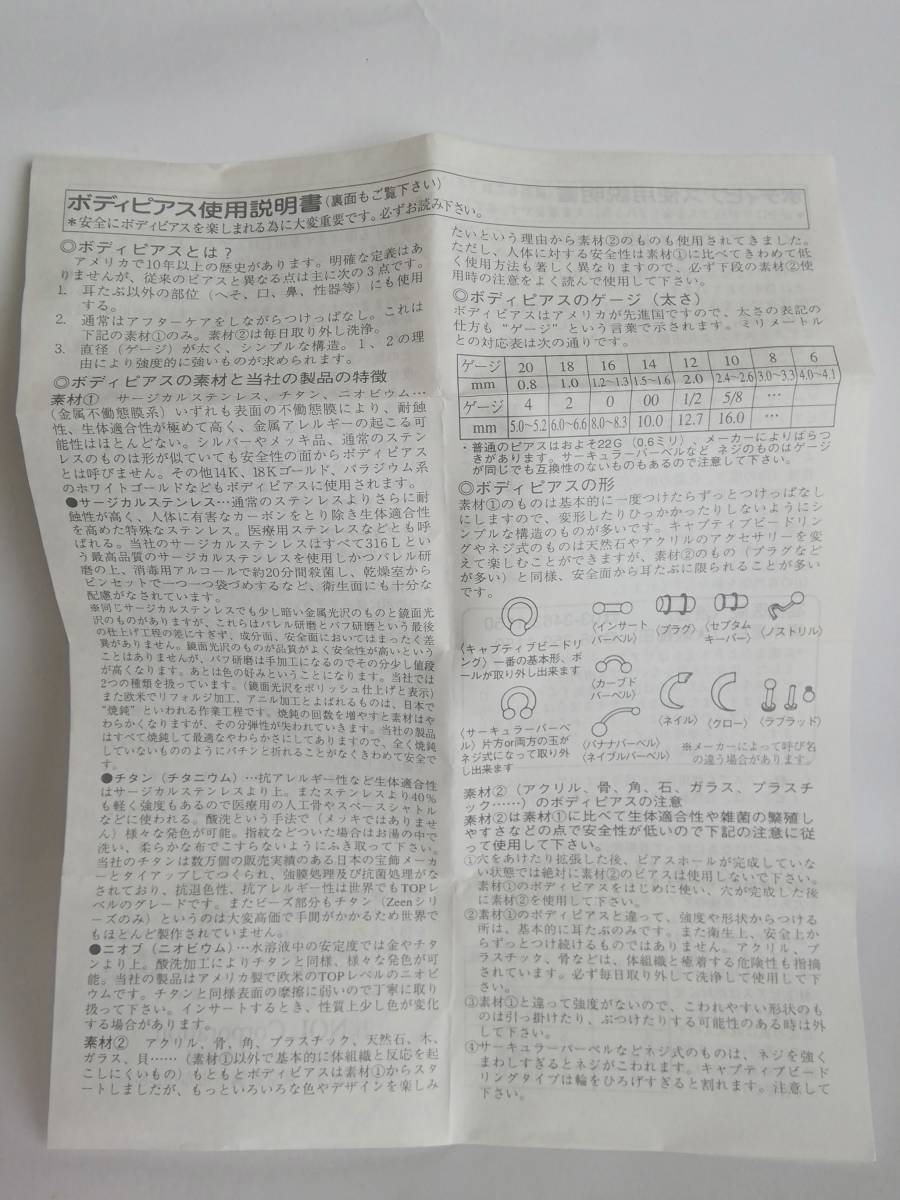 ボディピアス使用説明書(裏面もご覧下さい)
*安全にボディピアスを楽しまれる為に大変重要です。必ずお読み下さい。
◎ボディピアスとは?
アメリカで10年以上の歴史があります。明確な定義はあ
りませんが、従来のピアスと異なる点は主に次の3点です。
1. 耳たぶ以外の部位(へそ、口、鼻、性器等)にも使用
する。
2. 通常はアフターケアをしながらつけっぱなし。これは
下記の素材①のみ。素材②は毎日取り外し洗浄。
3. 直径(ゲージ)が太く、シンプルな構造。1、2の理
由により強度的に強いものが求められます。
◎ボディピアスの素材と当社の製品の特徴
素材① サージカルステンレス、チタン、ニオビウム…
(金属不働態膜系)いずれも表面の不働態膜により、耐蝕
性、生体適合性が極めて高く、金属アレルギーの起こる可
能性はほとんどない。シルバーやメッキ品、通常のステン
レスのものは形が似ていても安全性の面からボディピアス
とは呼びません。その他14K、18Kゴールド、パラジウム系
のホワイトゴールドなどもボディピアスに使用されます。
●サージカルステンレス…通常のステンレスよりさらに耐
蝕性が高く、人体に有害なカーボンをとり除き生体適合性
を高めた特殊なステンレス。医療用ステンレスなどとも呼
ばれる。当社のサージカルステンレスはすべて316Lとい
う最高品質のサージカルステンレスを使用しかつバレル研
磨の上、消毒用アルコールで約20分間殺菌し、乾燥室から
ピンセットで一つ一つ袋づめするなど、衛生面にも十分な
配慮がなされています。
※同じサージカルステンレスでも少し暗い金属光沢のものと鏡面光
沢のものがありますが、これらはバレル研磨とバフ研磨という最後
の仕上げ工程の差にすぎず、成分面、安全面においてはまったく差
異がありません。鏡面光沢のものが品質がよく安全性が高いという
ことはありませんが、バフ研磨は手加工になるのでその分少し値段
が高くなります。あとは色の好みということになります。当社では
2つの種類を扱っています。(鏡面光沢をポリッシュ仕上げと表示)
また欧米でリフォルジ加工、アニル加工とよばれるものは、日本で
"焼鈍"といわれる作業工程です。焼鈍の回数を増やすと素材はや
わらかくなりますが、その分弾性が失われていきます。当社の製品
はすべて焼鈍して最適なやわらかさにしてありますので、全く焼鈍
していないもののようにパチンと折れることがなくきわめて安全で
す。
●チタン(チタニウム)…抗アレルギー性など生体適合性
はサージカルステンレスより上。またステンレスより40%
も軽く強度もあるので医療用の人工骨やスペースシャトル
などに使われる。酸洗という手法で(メッキではありませ
ん)様々な発色が可能。指紋などついた場合はお湯の中で
洗い、柔らかな布でこすらないようにふき取って下さい。
当社のチタンは数万個の販売実績のある日本の宝飾メーカ
ーとタイアップしてつくられ、強膜処理及び抗菌処理がな
されており、抗退色性、抗アレルギー性は世界でもTOPレ
ベルのグレードです。またビーズ部分もチタン(Zeenシリ
ーズのみ)というのは大変高価で手間がかかるため世界で
もほとんど製作されていません。
●ニオブ(ニオビウム)…水溶液中の安定度では金やチタ
ンより上。酸洗加工によりチタンと同様、様々な発色が可
能。当社の製品はアメリカ製で欧米のTOPレベルのニオビ
ウムです。チタンと同様表面の摩擦に弱いので丁寧に取り
扱って下さい。インサートするとき、性質上少し色が変化
する場合があります。
素材② アクリル、骨、角、プラスチック、天然石、木、
ガラス、貝……(素材①以外で基本的に体組織と反応を起
こしにくいもの)もともとボディピアスは素材①からスタ
ートしましたが、もっといろいろな色やデザインを楽しみ
たいという理由から素材②のものも使用されてきました。
ただし、人体に対する安全性は素材①に比べてきわめて低
く使用方法も著しく異なりますので、必ず下段の素材②使
用時の注意をよく読んで使用して下さい。
◎ボディピアスのゲージ(太さ)
ボディピアスはアメリカが先進国ですので、太さの表記の
仕方も"ゲージ"という言葉で示されます。ミリメートル
との対応表は次の通りです。
ゲージ 20 18 16 14 12 10 8 6
mm 0.8 1.0 1.2~1.3 1.5~1.6 2.0 2.4~2.6 3.0~3.3 4.0~4.1
ゲージ 4 2 0 00 1/2 5/8 …
mm 5.0~5.2 6.0~6.6 8.0~8.3 10.0 12.7 16.0 …
・普通のピアスはおよそ22G(0.6ミリ)、メーカーによりばらつ
きがあります。サーキュラーバーベルなど ネジのものはゲージ
が同じでも互換性のないものもあるので注意して下さい。
◎ボディピアスの形
素材①のものは基本的に一度つけたらずっとつけっぱなし
にしますので、変形したりひっかかったりしないようにシ
ンプルな構造のものが多いです。キャプティブビードリン
グやネジ式のものは天然石やアクリルのアクセサリーを変
えて楽しむことができますが、素材②のもの(プラグなど
が多い)と同様、安全面から耳たぶに限られることが多い
です。
〈キャプティブビードリ
ング〉一番の基本形、ボ
ールが取り外し出来ます
〈インサート
バーベル〉
〈プラグ〉
〈セプタム
キーパー〉
〈ノストリル〉
〈カーブド
バーベル〉
〈サーキュラーバーベ
ル〉片方or両方の玉が
ネジ式になって取り外
し出来ます
〈バナナバーベル〉
〈ネイブルバーベル〉
〈ネイル〉
〈クロー〉
〈ラブラッド〉
※メーカーによって呼び名
の違う場合があります。
素材②(アクリル、骨、角、石、ガラス、プラスチ
ック……)のボディピアスの注意
素材②は素材①に比べて生体適合性や雑菌の繁殖し
やすさなどの点で安全性が低いので下記の注意に従
って使用して下さい。
①穴をあけたり拡張した後、ピアスホールが完成していな
い状態では絶対に素材②のピアスは使用しないで下さい。
素材①のボディピアスをはじめに使い、穴が完成した後
に素材②を使用して下さい。
②素材①のボディピアスと違って、強度や形状からつける
所は、基本的に耳たぶのみです。また衛生上、安全上か
らずっとつけ続けるものではありません。アクリル、プ
ラスチック、骨などは、体組織と癒着する危険性も指摘
されています。必ず毎日取り外して洗浄して使用して下
さい。
③素材①と違って強度がないので、こわれやすい形状のも
のは引っ掛けたり、ぶつけたりする可能性のある時は外
して下さい。
④サーキュラーバーベルなどネジ式のものは、ネジを強く
まわしすぎるとネジがこわれます。キャプティブビード
リングタイプは輪をひろげすぎると割れます。注意して
下さい。